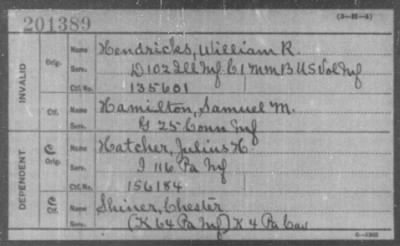 201389
(3-312-2)
INVALID
Orig.
Name Hendricks, William R.
Serv. D 102 Ill Inf C 1 Mm B US Vol Inf
Ctf. No. 135601
Ctf.
Name Hamilton, Samuel M.
Serv. G 25 Conn Inf
DEPENDENT
C Orig.
Name Hatcher, Julius H.
Serv. I 116 Pa Inf
Ctf. No. 156184
C Ctf.
Name Shiner, Chester
Serv. (K 64 Pa Inf) K 4 Pa Cav